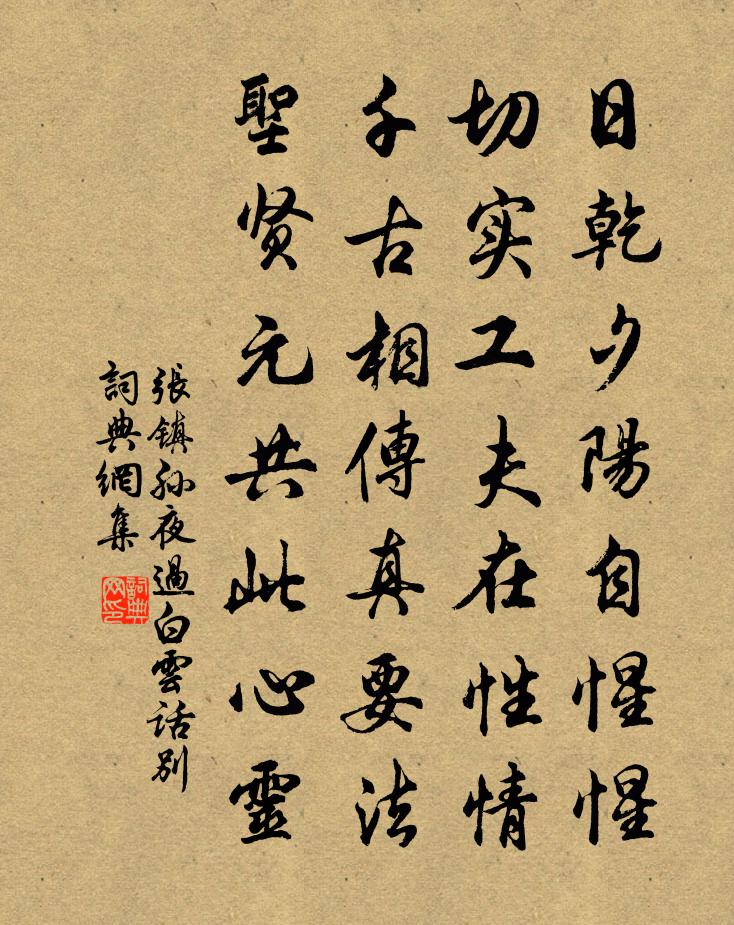 日乾夕陽自惺惺
切实工夫在性情
千古相傳真要法
聖贤元共此心靈
張鎮孙夜過白雲話別
詞典網集
詞典网印